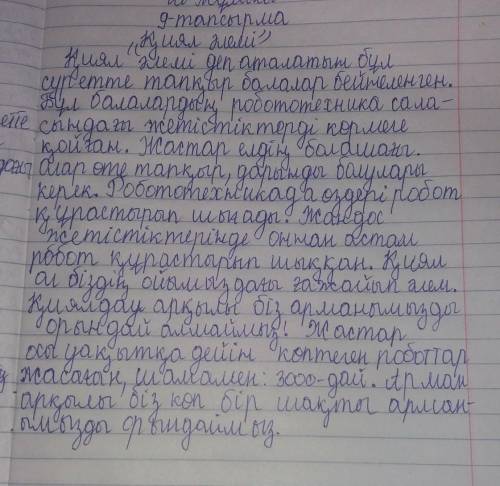 9-тапсырма
"Қиял әлемі"
Қиял әлемі деп аталатын бұл
суретте тапқыр балалар бейнеленген.
Бұл балалардың робототехника сала-
сындағы жетістіктерді көрмеге
қойған. Жастар елдің болашағы.
Олар өте тапқыр, дарынды болулары
керек. Робототехникада өздері робот
құрастырып шығады. Жандос
жетістіктерінде оннан астам
робот құрастырып шыққан. Қиял
ол біздің ойымыздағы ғажайып әлем.
Қиялдау арқылы біз арманымызды
орындай алмаймыз! Жастар
осы уақытқа дейін көптеген роботтар
жасаған, шамамен: 3000-дай. Арман
арқылы біз көп бір шақты арман-
ымызды орындаймыз.